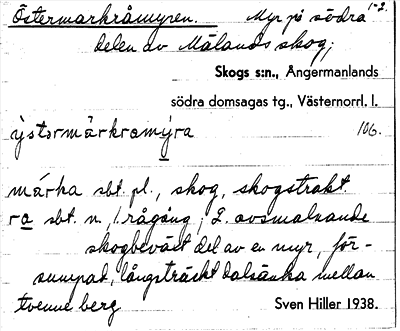 Östermarkråmyren. Myr på södra 1-2.
delen av Mälands skog;
Skogs s:n., Ångermanlands
södra domsagas tg., Västernorrl. l.
ÿstərmärkramýra 106.
márka sbt. pl., skog, skogstrakt.
ra sbt. n., 1. rågång; 2. avsmalnande
skogbeväxt del av en myr, för-
sumpad, långsträckt dalsänka mellan
tvenne berg Sven Hiller 1938.